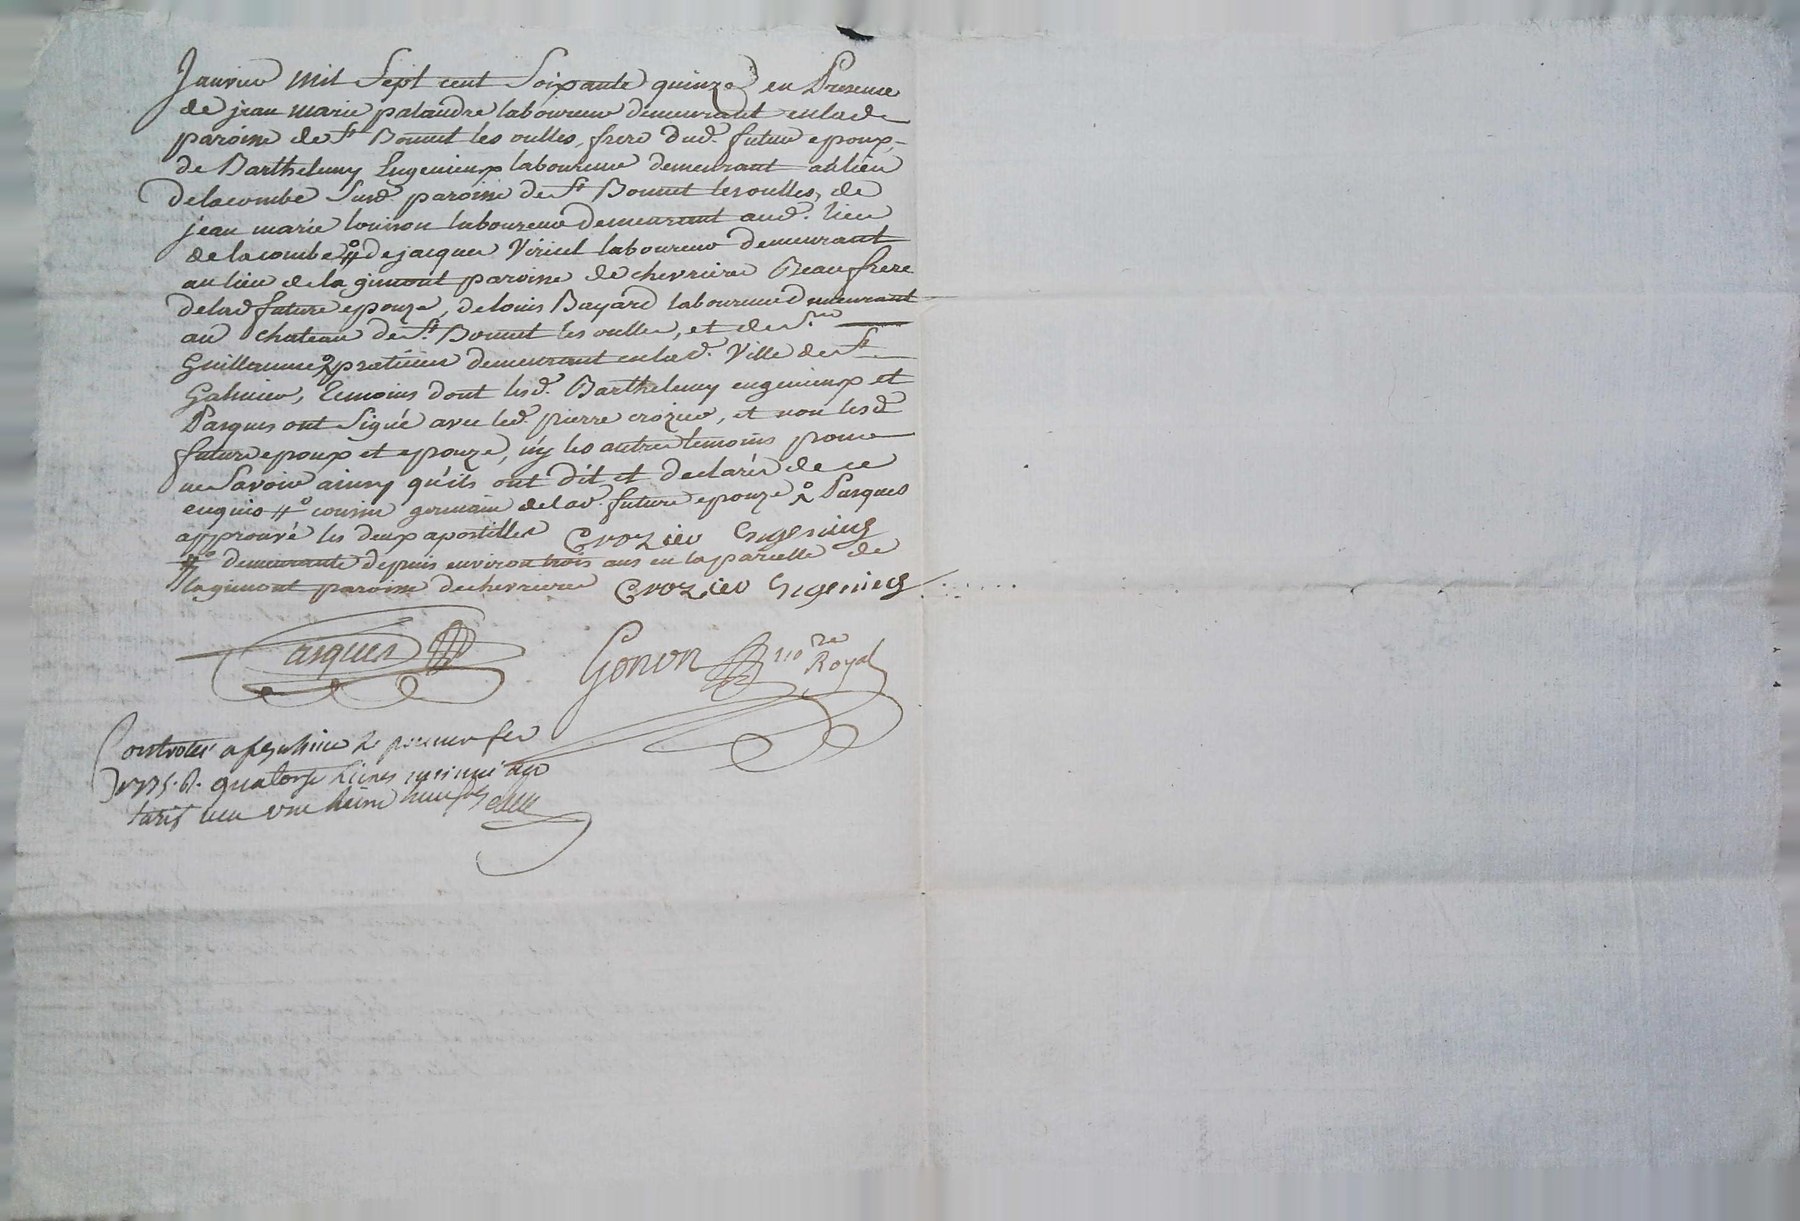 Janvier mil Sept cent Soixante quinze en Presence
de jean marie palandre laboureur demeurant en lad.
paroisse de St. Bonnet les oulles, frere dud. futur epoux,
de Barthelemy Eugenieux laboureur demeurant au lieu
delacombe Susd. paroisse de St. Bonnet les oulles, de
jean marie louison laboureur demeurant aud. lieu
de lacombe # de jacques Viricel laboureur demeurant
au lieu de la gimont paroisse de chevrieres Beaufrere
delad future epouze, de louis Bayard laboureur demeurant
au chateau de St. Bonnet les oulles, et de Sr.
Guillaume praticien demeurant en lad. Ville de St.
Galmier, temoins dont lesd. Barthelemy eugenieux et
Pasques ont Signé avec led. pierre crozier, et non lesd
futurs epoux et epouze, n'y les autres temoins pour
ne Savoir ainsy qu'ils ont dit et declarés de ce
enquis # cousin germain delad. future epouze Pasques
approuvé les deux apostilles Crozier Eugenieux
# demeurante depuis environ trois ans en la parcelle de
lagimont paroisse de chevrieres Crozier Eugenieux
Pasques Gonon nore Royal
Controlé a le premier fev
1775. R. quatorze Livres